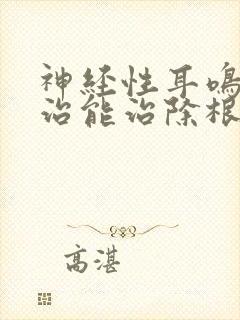 神经性耳鸣
治能治除根
高湛